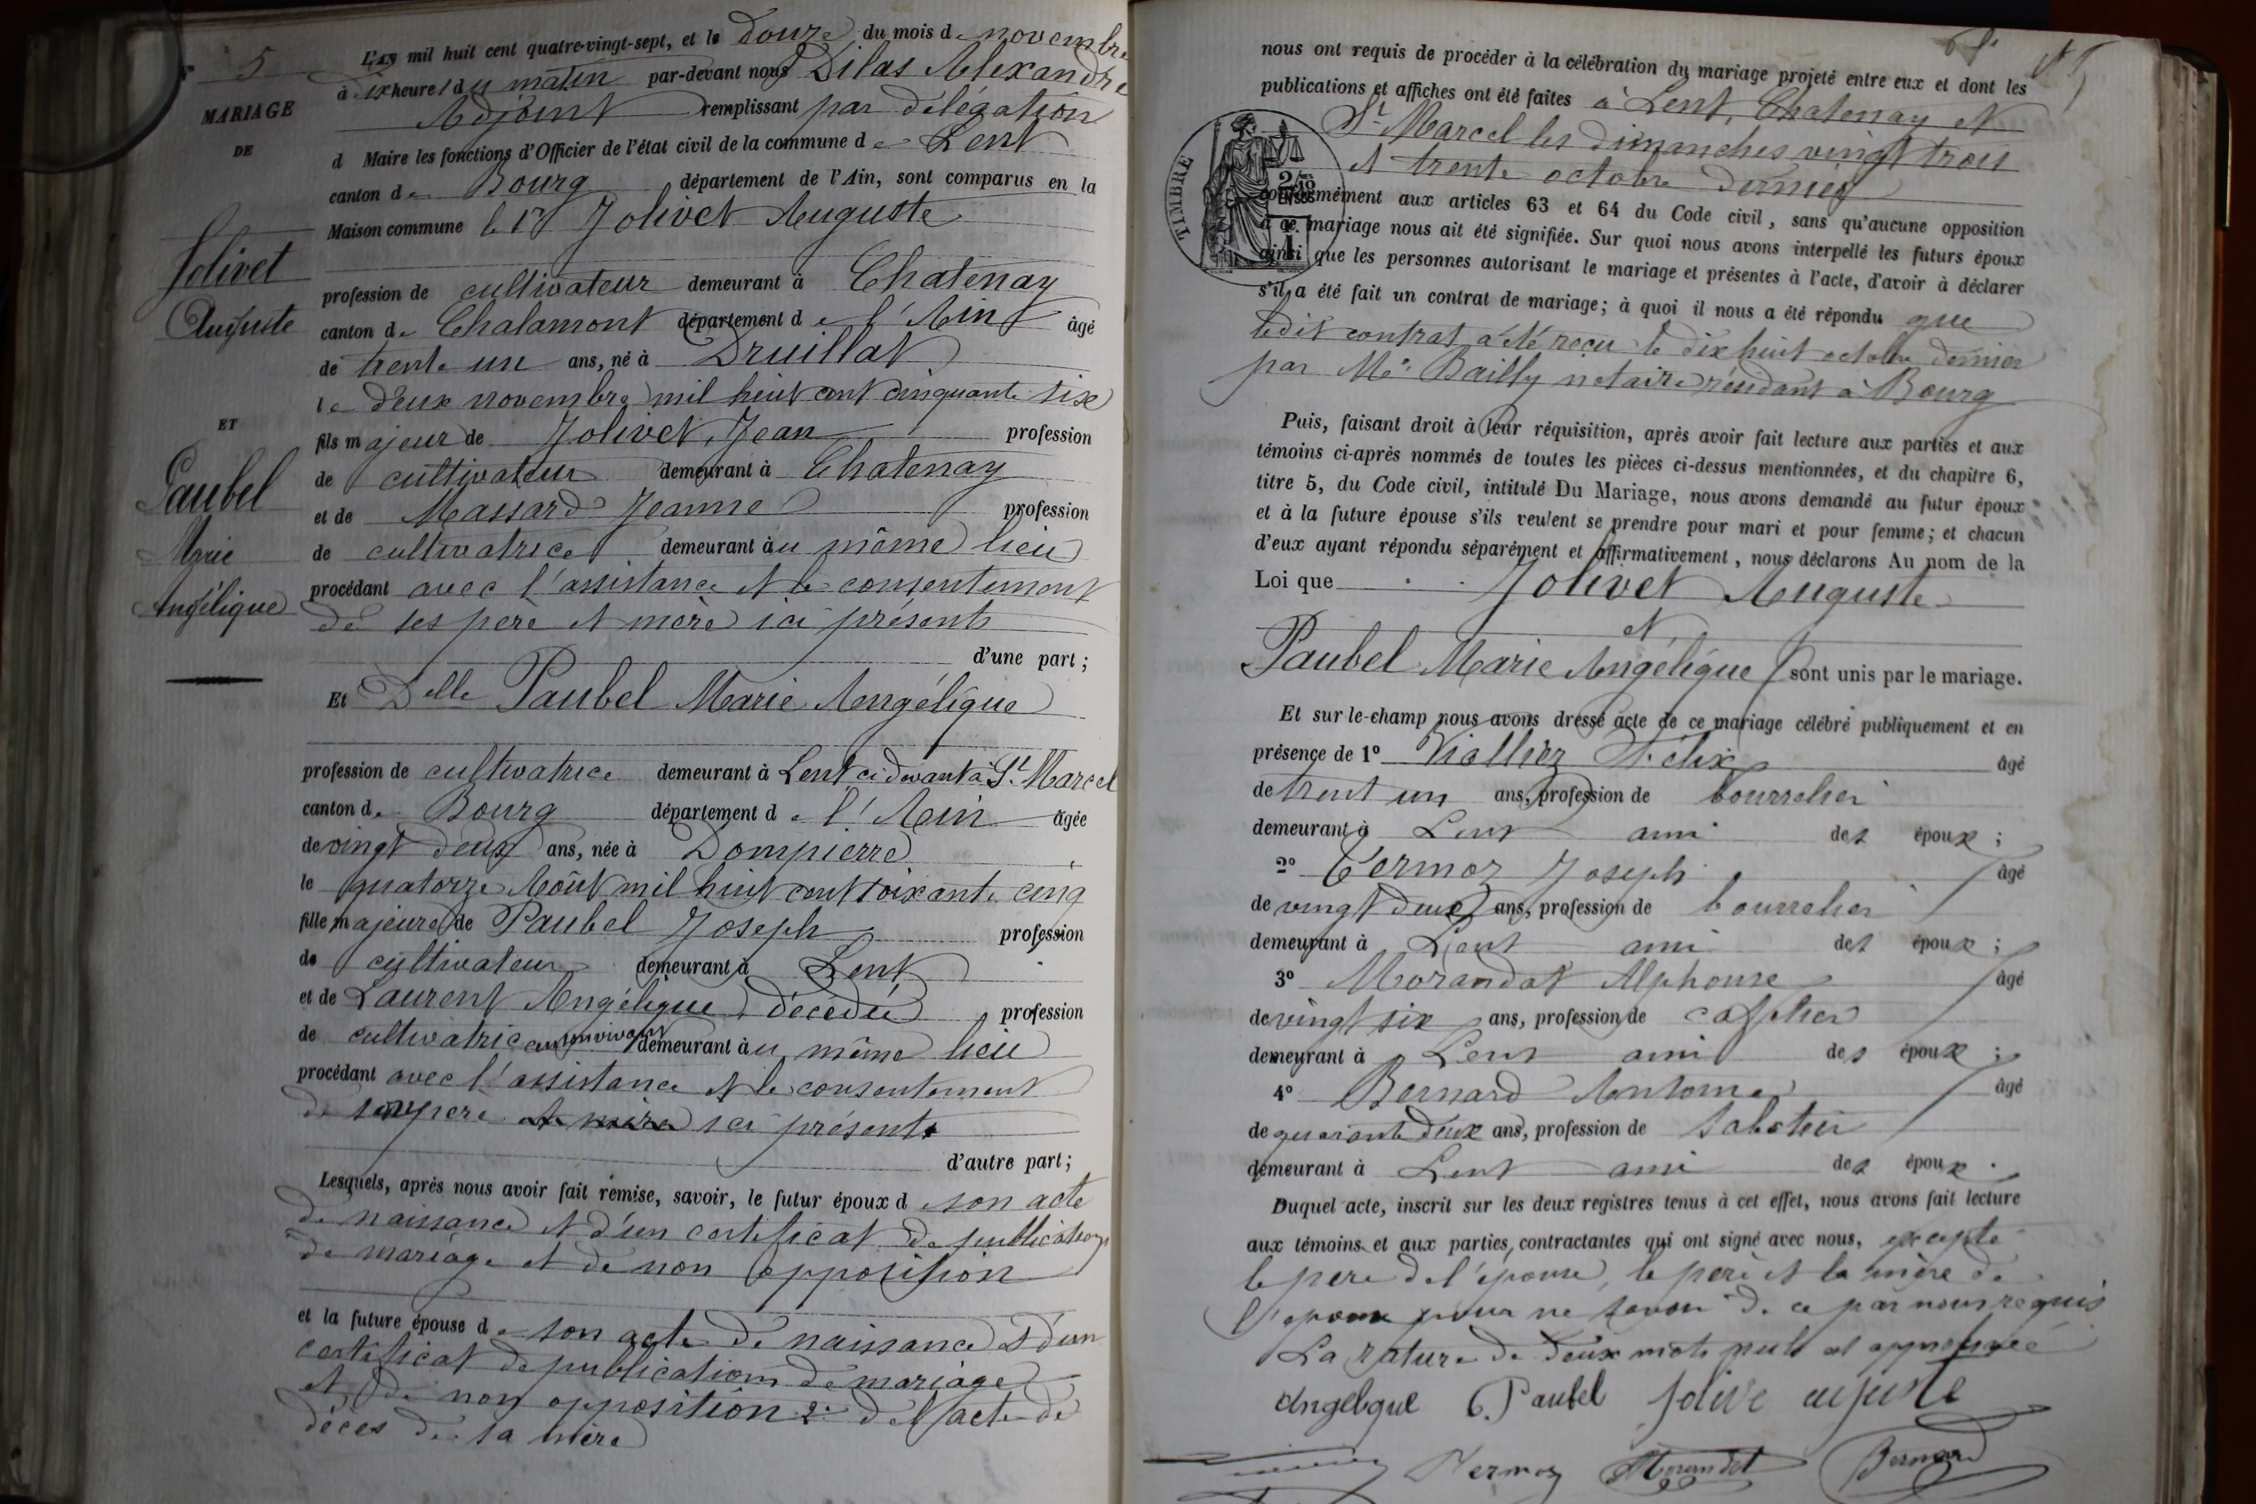 5
MARIAGE
DE
Jolivet
Auguste
ET
Paubel
Marie
Angélique
L'an mil huit cent quatre-vingt-sept, et le douze du mois de novembre
à dix heures du matin par-devant nous Dilas Alexandre
Adjoint remplissant par délégation
d Maire les fonctions d'Officier de l'état civil de la commune de Lent
canton de Bourg département de l'Ain, sont comparus en la
Maison commune le Sr Jolivet Auguste
profession de cultivateur demeurant à Chatenay
canton de Chalamont département de l'Ain âgé
de trente un ans, né à Druillat
le deux novembre mil huit cent cinquante six
fils majeur de Jolivet, Jean profession
de cultivateur demeurant à Chatenay
et de Massard Jeanne profession
de cultivatrice demeurant au même lieu
procédant avec l'assistance et le consentement
de ses père et mère ici présents
d'une part;
Et Delle Paubel Marie Angélique
profession de cultivatrice demeurant à Lent ci devant à St Marcel
canton de Bourg département de l'Ain âgée
de vingt deux ans, née à Dompierre
le quatorze Août mil huit cent soixante cinq
fille majeure de Paubel Joseph profession
de cultivateur demeurant à Lent
et de Laurent Angélique décédée profession
de cultivatrice en son vivant demeurant au même lieu
procédant avec l'assistance et le consentement
de son père et mère ici présent
d'autre part;
Lesquels, après nous avoir fait remise, savoir, le futur époux de son acte
de naissance et d'un certificat de publications
de mariage et de non opposition
et la future épouse de son acte de naissance et d'un
certificat de publications de mariage
et de non opposition 2° de l'acte de
décès de sa mère
nous ont requis de procéder à la célébration du mariage projeté entre eux et dont les
publications et affiches ont été faites à Lent, Chatenay et
St Marcel les dimanches vingt trois
et trente octobre dernier
TIMBRE
conformément aux articles 63 et 64 du Code civil, sans qu'aucune opposition
à ce mariage nous ait été signifiée. Sur quoi nous avons interpellé les futurs époux
ainsi que les personnes autorisant le mariage et présentes à l'acte, d'avoir à déclarer
s'il a été fait un contrat de mariage; à quoi il nous a été répondu que
ledit contrat a été reçu le dix huit octobre dernier
par Me Bailly notaire résidant à Bourg
Puis, faisant droit à leur réquisition, après avoir fait lecture aux parties et aux
témoins ci-après nommés de toutes les pièces ci-dessus mentionnées, et du chapitre 6,
titre 5, du Code civil, intitulé Du Mariage, nous avons demandé au futur époux
et à la future épouse s'ils veulent se prendre pour mari et pour femme; et chacun
d'eux ayant répondu séparément et affirmativement, nous déclarons Au nom de la
Loi que Jolivet Auguste
et
Paubel Marie Angélique sont unis par le mariage.
Et sur-le-champ nous avons dressé acte de ce mariage célébré publiquement et en
présence de 1° Viallier Félix âgé
de trent un ans, profession de bourrelier
demeurant à Lent ami des époux;
2° Vermoz Joseph âgé
de vingt deux ans, profession de bourrelier
demeurant à Lent ami des époux;
3° Morandat Alphonse âgé
de vingt six ans, profession de cafetier
demeurant à Lent ami des époux;
4° Bernard Antoine âgé
de quarante deux ans, profession de sabotier
demeurant à Lent ami des époux.
Duquel acte, inscrit sur les deux registres tenus à cet effet, nous avons fait lecture
aux témoins et aux parties contractantes qui ont signé avec nous, excepté
le père de l'épouse, le père et la mère de
l'époux pour ne savoir de ce par nous requis
La rature de deux mots nuls est approuvée
Angelique C. Paubel Jolive aujuste
Vermoz Morandat Bernard